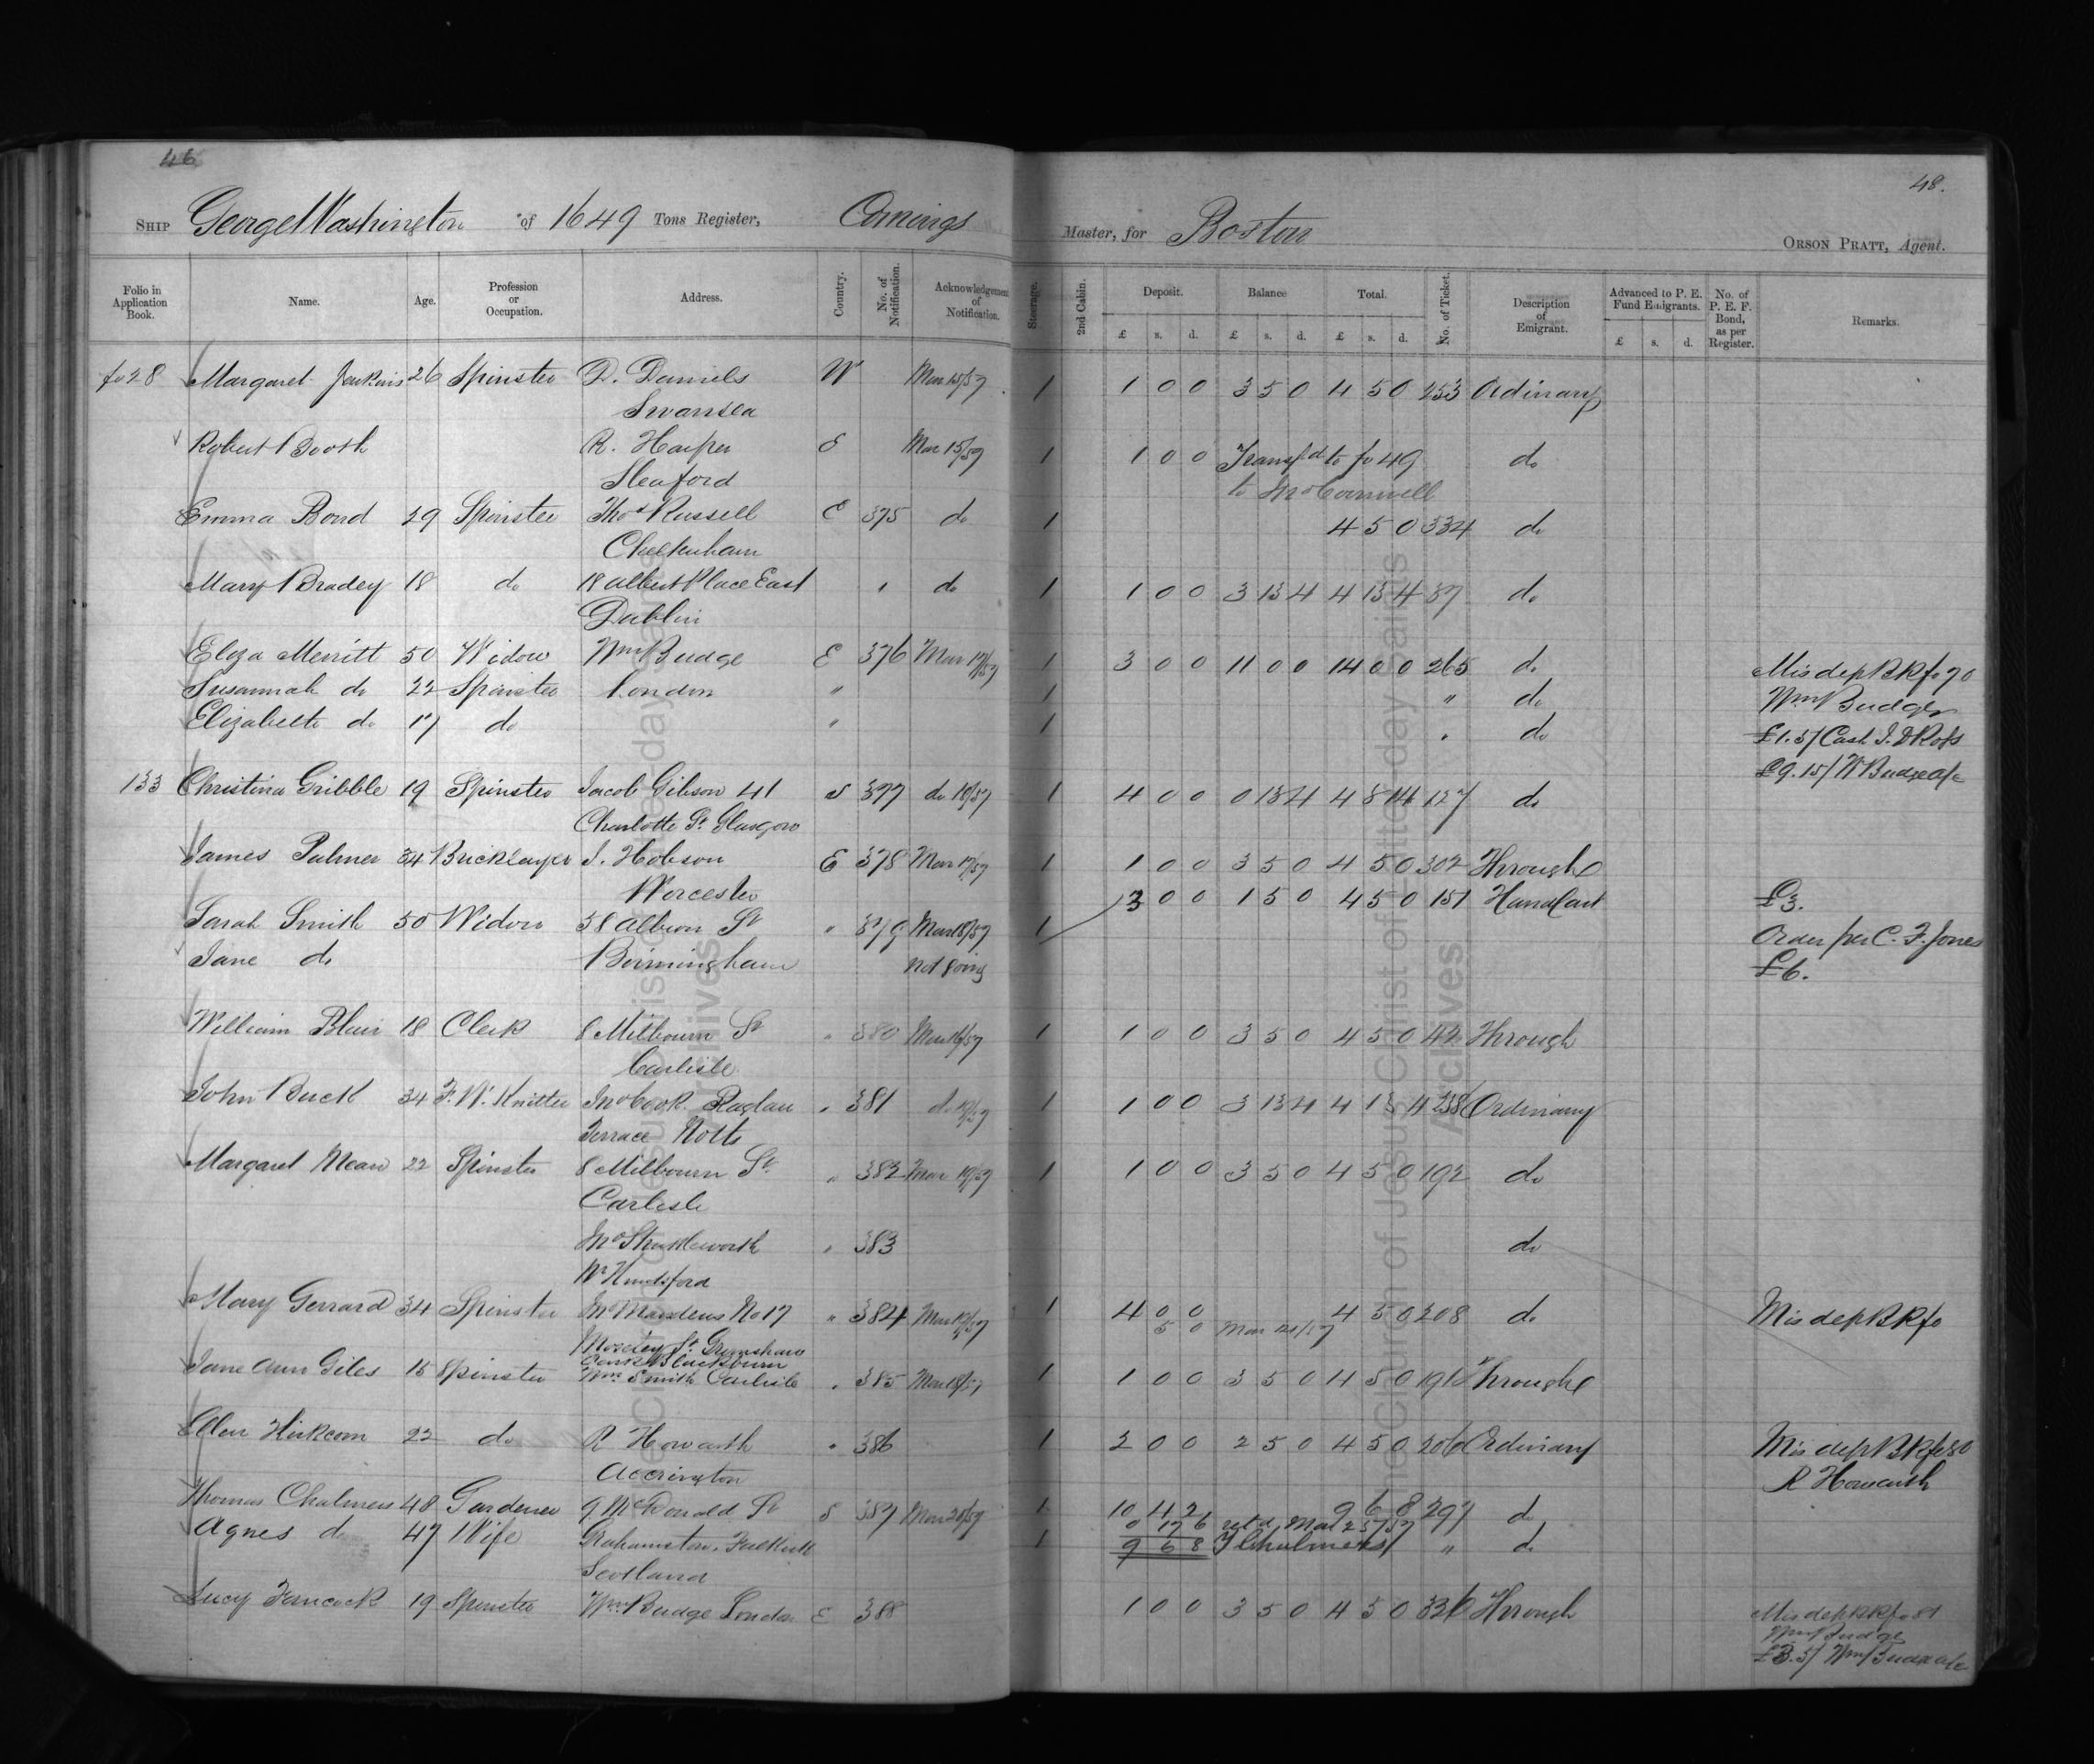 46
48.
SHIP George Washington of 1649 Tons Register, Comings Master, for Boston ORSON PRATT, Agent.
Folio in Application Book. Name. Age. Profession or Occupation. Address. Country. No. of Notification. Acknowledgement of Notification. Steerage. 2nd Cabin. Deposit. Balance Total. No. of Ticket. Description of Emigrant. Advanced to P. E. Fund Emigrants. No. of P. E. F. Bond, as per Register. Remarks.
£ s. d. £ s. d. £ s. d. £ s. d.
fo 28 Margaret Jenkins 26 Spinster D. Daniels W Mar 15/57 1 1 0 0 3 5 0 4 5 0 253 Ordinary
Swansea
Robert Booth R. Harper E Mar 15/57 1 1 0 0 Transfd to fo 49 do
Sleaford to Jno Cornwell
Emma Bond 29 Spinster Thos Russell E 375 do 1 4 5 0 334 do
Cheltenham
Mary Bradey 18 do 18 Albert Place East do 1 1 0 0 3 13 4 4 13 4 87 do
Dublin
Eliza Merritt 50 Widow Wm Budge E 376 Mar 17/57 1 3 0 0 11 0 0 14 0 0 265 do Mis dep BK fo 70
Susannah do 22 Spinster London " 1 " do Wm Budge
Elizabeth do 17 do " 1 do £1.5/ Cash J. D Ross
£9.15/ W Budge a/c
133 Christina Gribble 19 Spinster Jacob Gibson 41 S 377 do 18/57 1 4 0 0 0 13 4 4 127 do
Charlotte St. Glasgow
James Palmer 34 Bricklayer J. Hobson E 378 Mar 17/57 1 1 0 0 3 5 0 4 5 0 302 Through
Worcester 3 0 0 1 5 0 4 5 0 151 HandCart £3.
Sarah Smith 50 Widow 58 Albion St " 379 Mar 18/57 1 Order per C. F. Jones
Jane do Birmingham not going £6.
William Blair 18 Clerk 8 Milbourn St " 380 Mar 16/57 1 1 0 0 3 5 0 4 5 0 42 Through
Carlisle
John Buck 34 F. W. Knitter Jno Cook Raglan " 381 do 1 1 0 0 3 13 4 4 13 4 238 Ordinary
Terrace Notts
Margaret Mean 22 Spinster 8 Milbourn St. " 382 Mar 19/57 1 1 0 0 3 5 0 4 5 0 192 do
Carlisle
Jno Shuttleworth " 383 do
Nr Knutsford
Mary Gerrard 34 Spinster Jno No 17 " 384 Mar 17/57 1 4 0 0 4 5 0 208 do Mis dep BK fo
Moseley St. Grimshaw 5 0 Mar 20/57
Park Blackburn
Jane Ann Giles 15 Spinster Wm Smith Carlisle " 385 Mar 18/57 1 1 0 0 3 5 0 4 5 0 Through
Ellen 22 do R Howarth " 386 1 2 0 0 2 5 0 4 5 0 206 Ordinary Mis dep BK fo 80
Accrington R Howarth
Thomas Chalmers 48 Gardener 9 McDonald St S 387 Mar 20/57 1 10 4 2 9 6 8 297 do
0 17 6 retd Mar 25/57
Agnes do 47 Wife Grahamston, Falkirk 1 9 6 8 T Chalmers " do
Scotland
Lucy Hancock 19 Spinster Wm Budge London E 388 1 0 0 3 5 0 4 5 0 326 Through Mis dep BK fo 81
Wm Budge
£3.5/ Wm Budge a/c